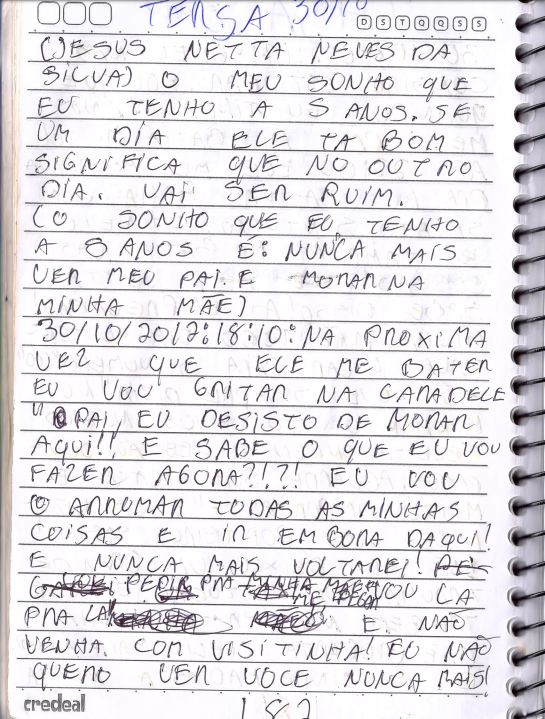 TERSA 30/10
D S T Q Q S S
(JESUS NETTA NEVES DA
SILVA) O MEU SONHO QUE
EU TENHO A 5 ANOS. SE
UM DIA ELE TA BOM
SIGNIFICA QUE NO OUTRO
DIA. VAI SER RUIM.
(O SONHO QUE EU TENHO
A 8 ANOS E: NUNCA MAIS
VER MEU PAI. E MORAR NA
MINHA MÃE)
30/10/2012:18:10: NA PROXIMA
VEZ QUE ELE ME BATER
EU VOU GRITAR NA CARA DELE
"PAI, EU DESISTO DE MORAR
AQUI!! E SABE O QUE EU VOU
FAZER AGORA?!?! EU VOU
ARRUMAR TODAS AS MINHAS
COISAS E IR EMBORA DAQUI!
E NUNCA MAIS VOLTAREI!
VOU PEDIR PRA MINHA MAE ME PEGAR VOU LA
PRA LA E NÃO
VENHA COM VISITINHA! EU NÃO
QUERO VER VOCE NUNCA MAIS!
credeal
182